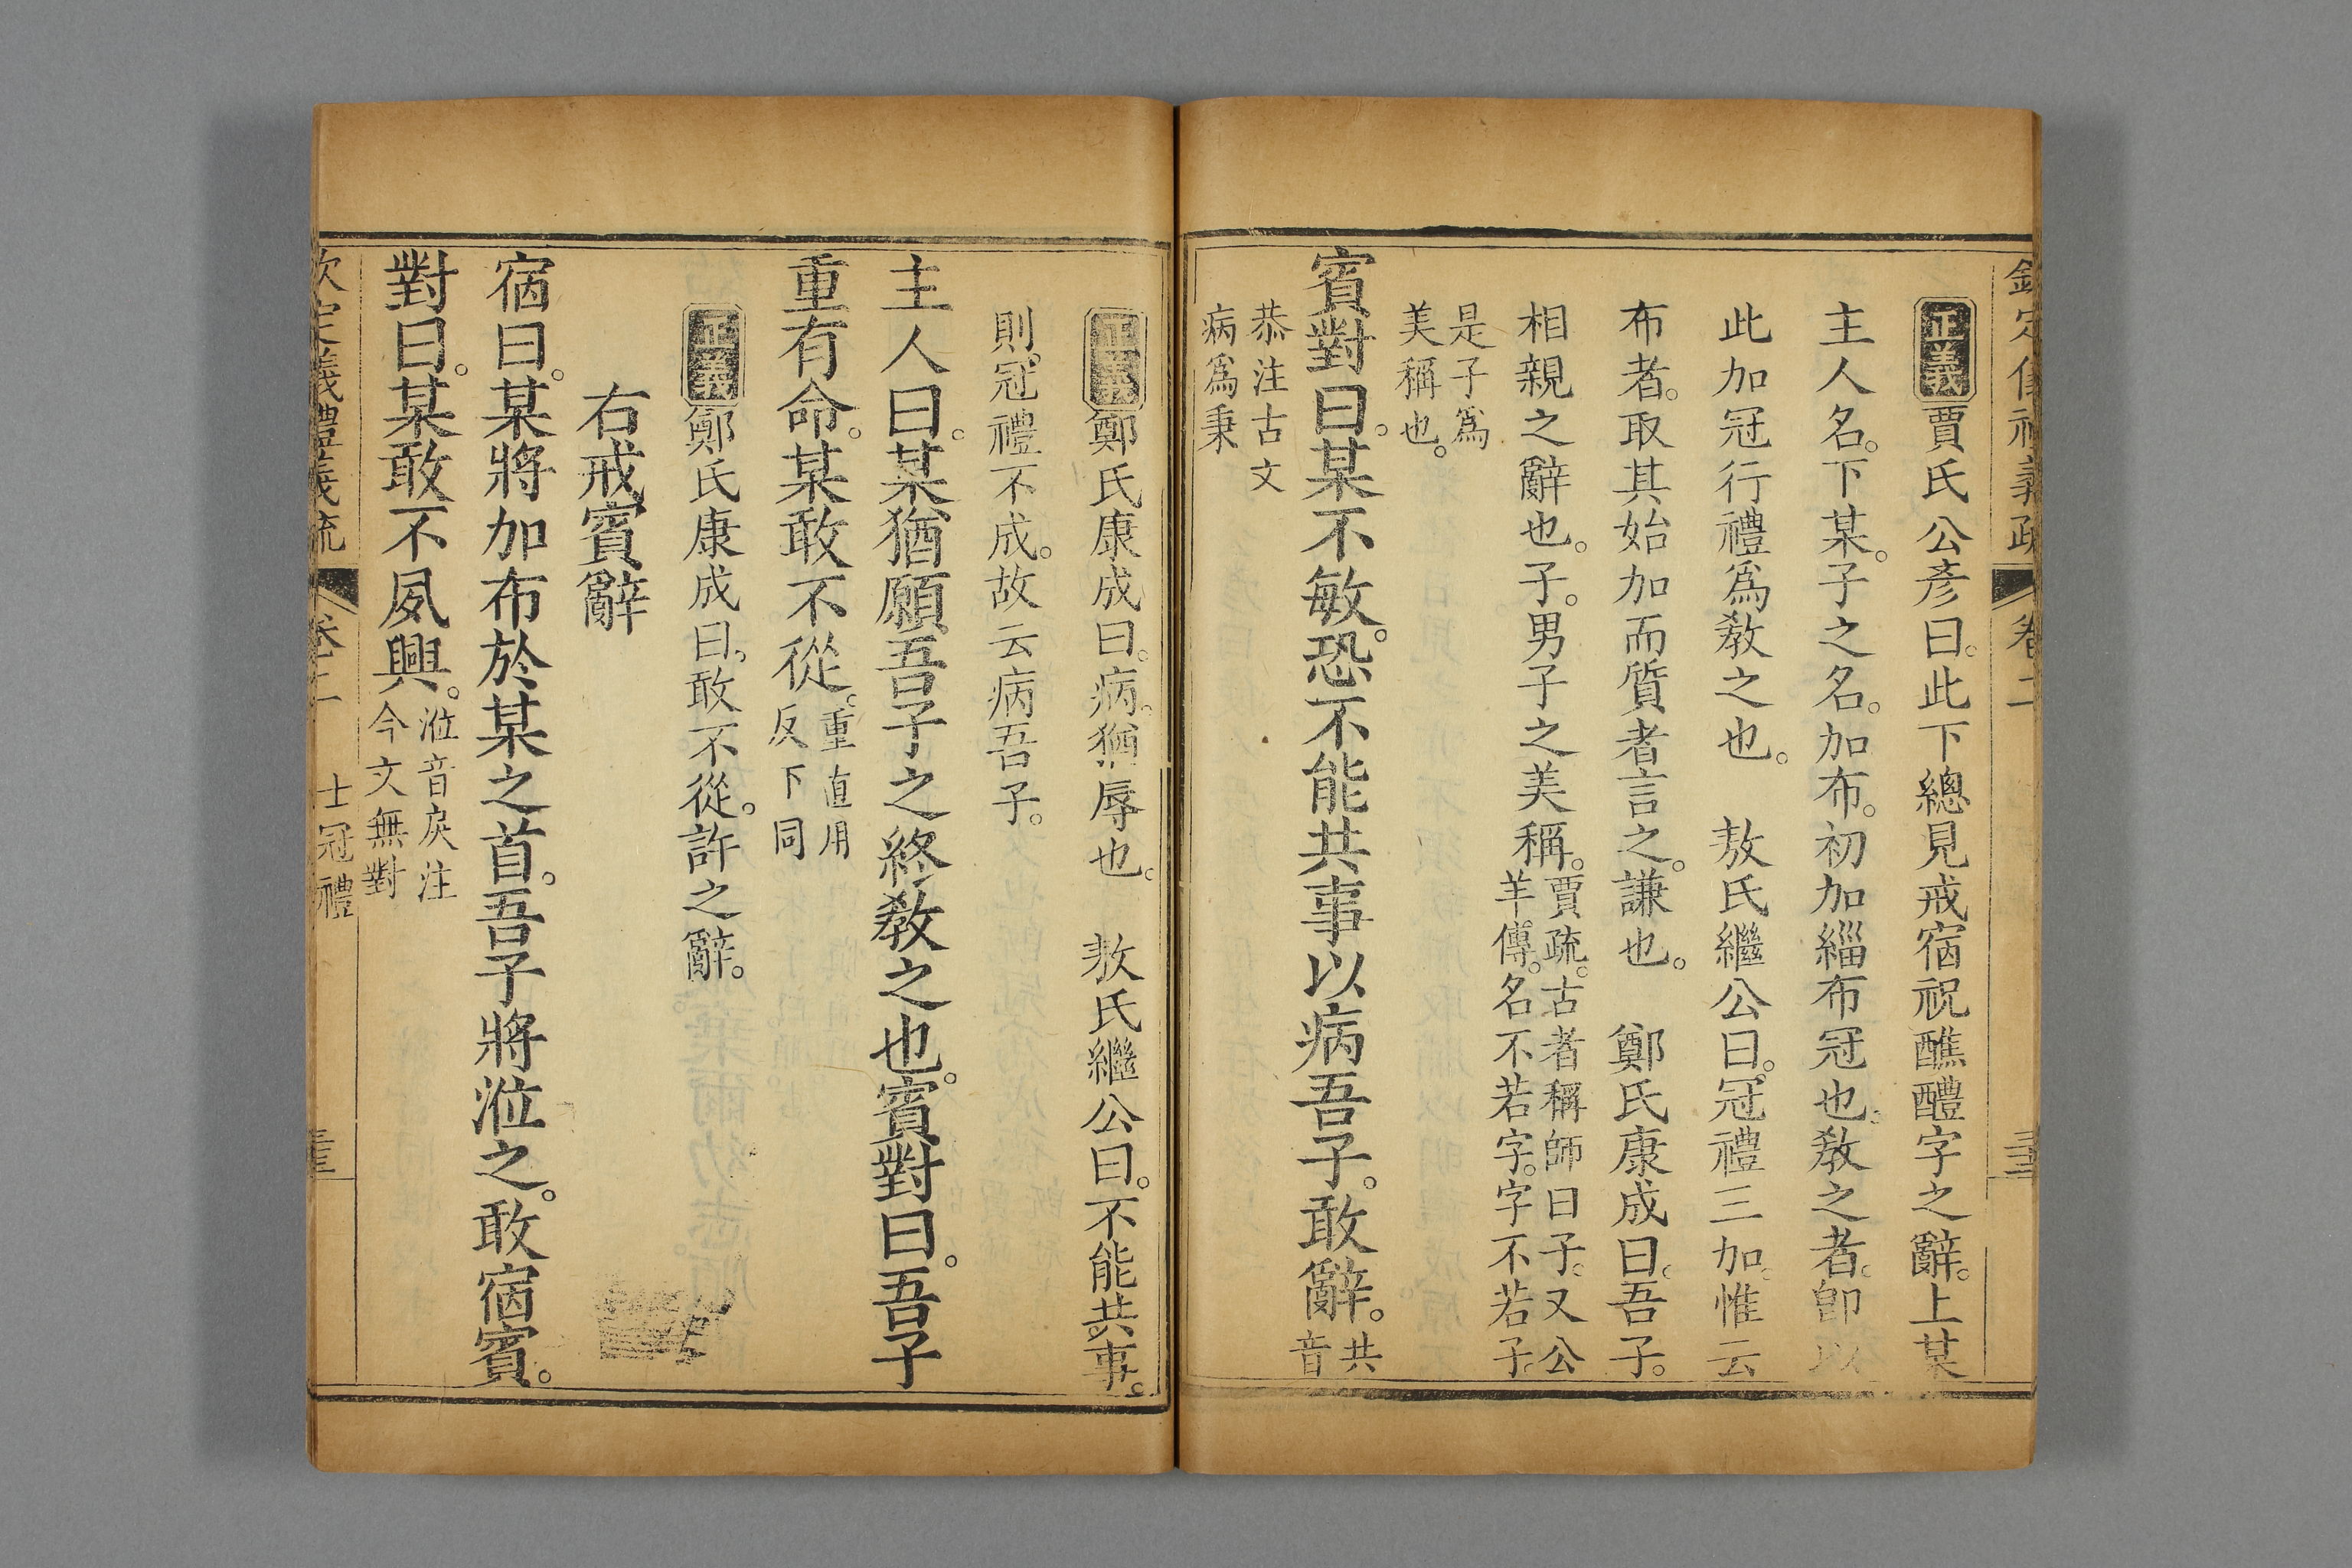 欽定儀禮義疏 卷二
正義賈氏公彥曰。此下總見戒宿祝醮醴字之辭。上某
主人名。下某。子之名。加布。初加緇布冠也。敎之者。卽以
此加冠行禮爲敎之也。 敖氏繼公曰。冠禮三加。惟云
布者。取其始加而質者言之。謙也。 鄭氏康成曰。吾子。
相親之辭也。子。男子之美稱。賈疏。古者稱師曰子。又公
羊傳。名不若字。字不若子。
是子爲
美稱也。
賓對曰。某不敏。恐不能共事。以病吾子。敢辭。共
音
恭注古文
病爲秉
正義鄭氏康成曰。病。猶辱也。 敖氏繼公曰。不能共事。
則冠禮不成。故云病吾子。
主人曰。某猶願吾子之終敎之也。賓對曰。吾子
重有命。某敢不從。重直用
反下同
正義鄭氏康成曰。敢不從。許之辭。
右戒賓辭
宿曰。某將加布於某之首。吾子將涖之。敢宿賓。
對曰。某敢不夙興。涖音戾注
今文無對
欽定義禮義疏 卷二 士冠禮